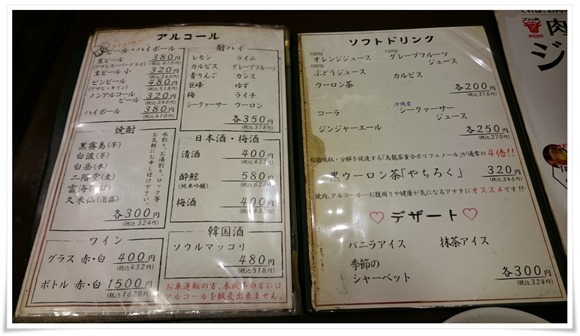 アルコール
ビール・ハイボール
生ビール 380円
(アサヒスーパードライ) (税込410円)
生ビール 小 320円
ビンビール 480円
(アサヒ・キリン)
ノンアルコール
ビール 320円
ハイボール 380円
酎ハイ
レモン ライム
カルピス グレープフルーツ
青りんご カシス
巨峰 ゆず
梅 ライチ
シークァーサー ウーロン
各350円
(税込378円)
焼酎
水割り、お湯割り、ロック等、
お気軽にお申し付け下さい。
黒霧島(芋)
白波(芋)
白岳(米)
二階堂(麦)
雲海(そば)
久米仙(泡盛)
各300円
(税込324円)
日本酒・梅酒
清酒 400円
(税込432円)
酔鯨 580円
(純米吟醸)
梅酒 400円
(税込432円)
ワイン
グラス 赤・白 400円
(税込432円)
ボトル 赤・白 1500円
(税込1620円)
韓国酒
ソウルマッコリ
480円
(税込518円)
お車運転の方、未成年の方には
アルコールを販売出来ません。
ソフトドリンク
オレンジジュース グレープフルーツ
ジュース
ぶどうジュース カルピス
ウーロン茶
各200円
(税込216円)
コーラ 沖縄産 シークァーサー
ジュース
ジンジャーエール
各250円
(税込270円)
脂肪吸収・分解を促進する「烏龍茶重合ポリフェノール」が通常の4倍!!
黒ウーロン茶「やちろく」 320円
(税込346円)
焼肉、アルコール・お腹周りや健康が気になるアナタにオススメです!!
デザート
バニラアイス 抹茶アイス
季節の
シャーベット
各300円
(税込324円)
肉
ジ